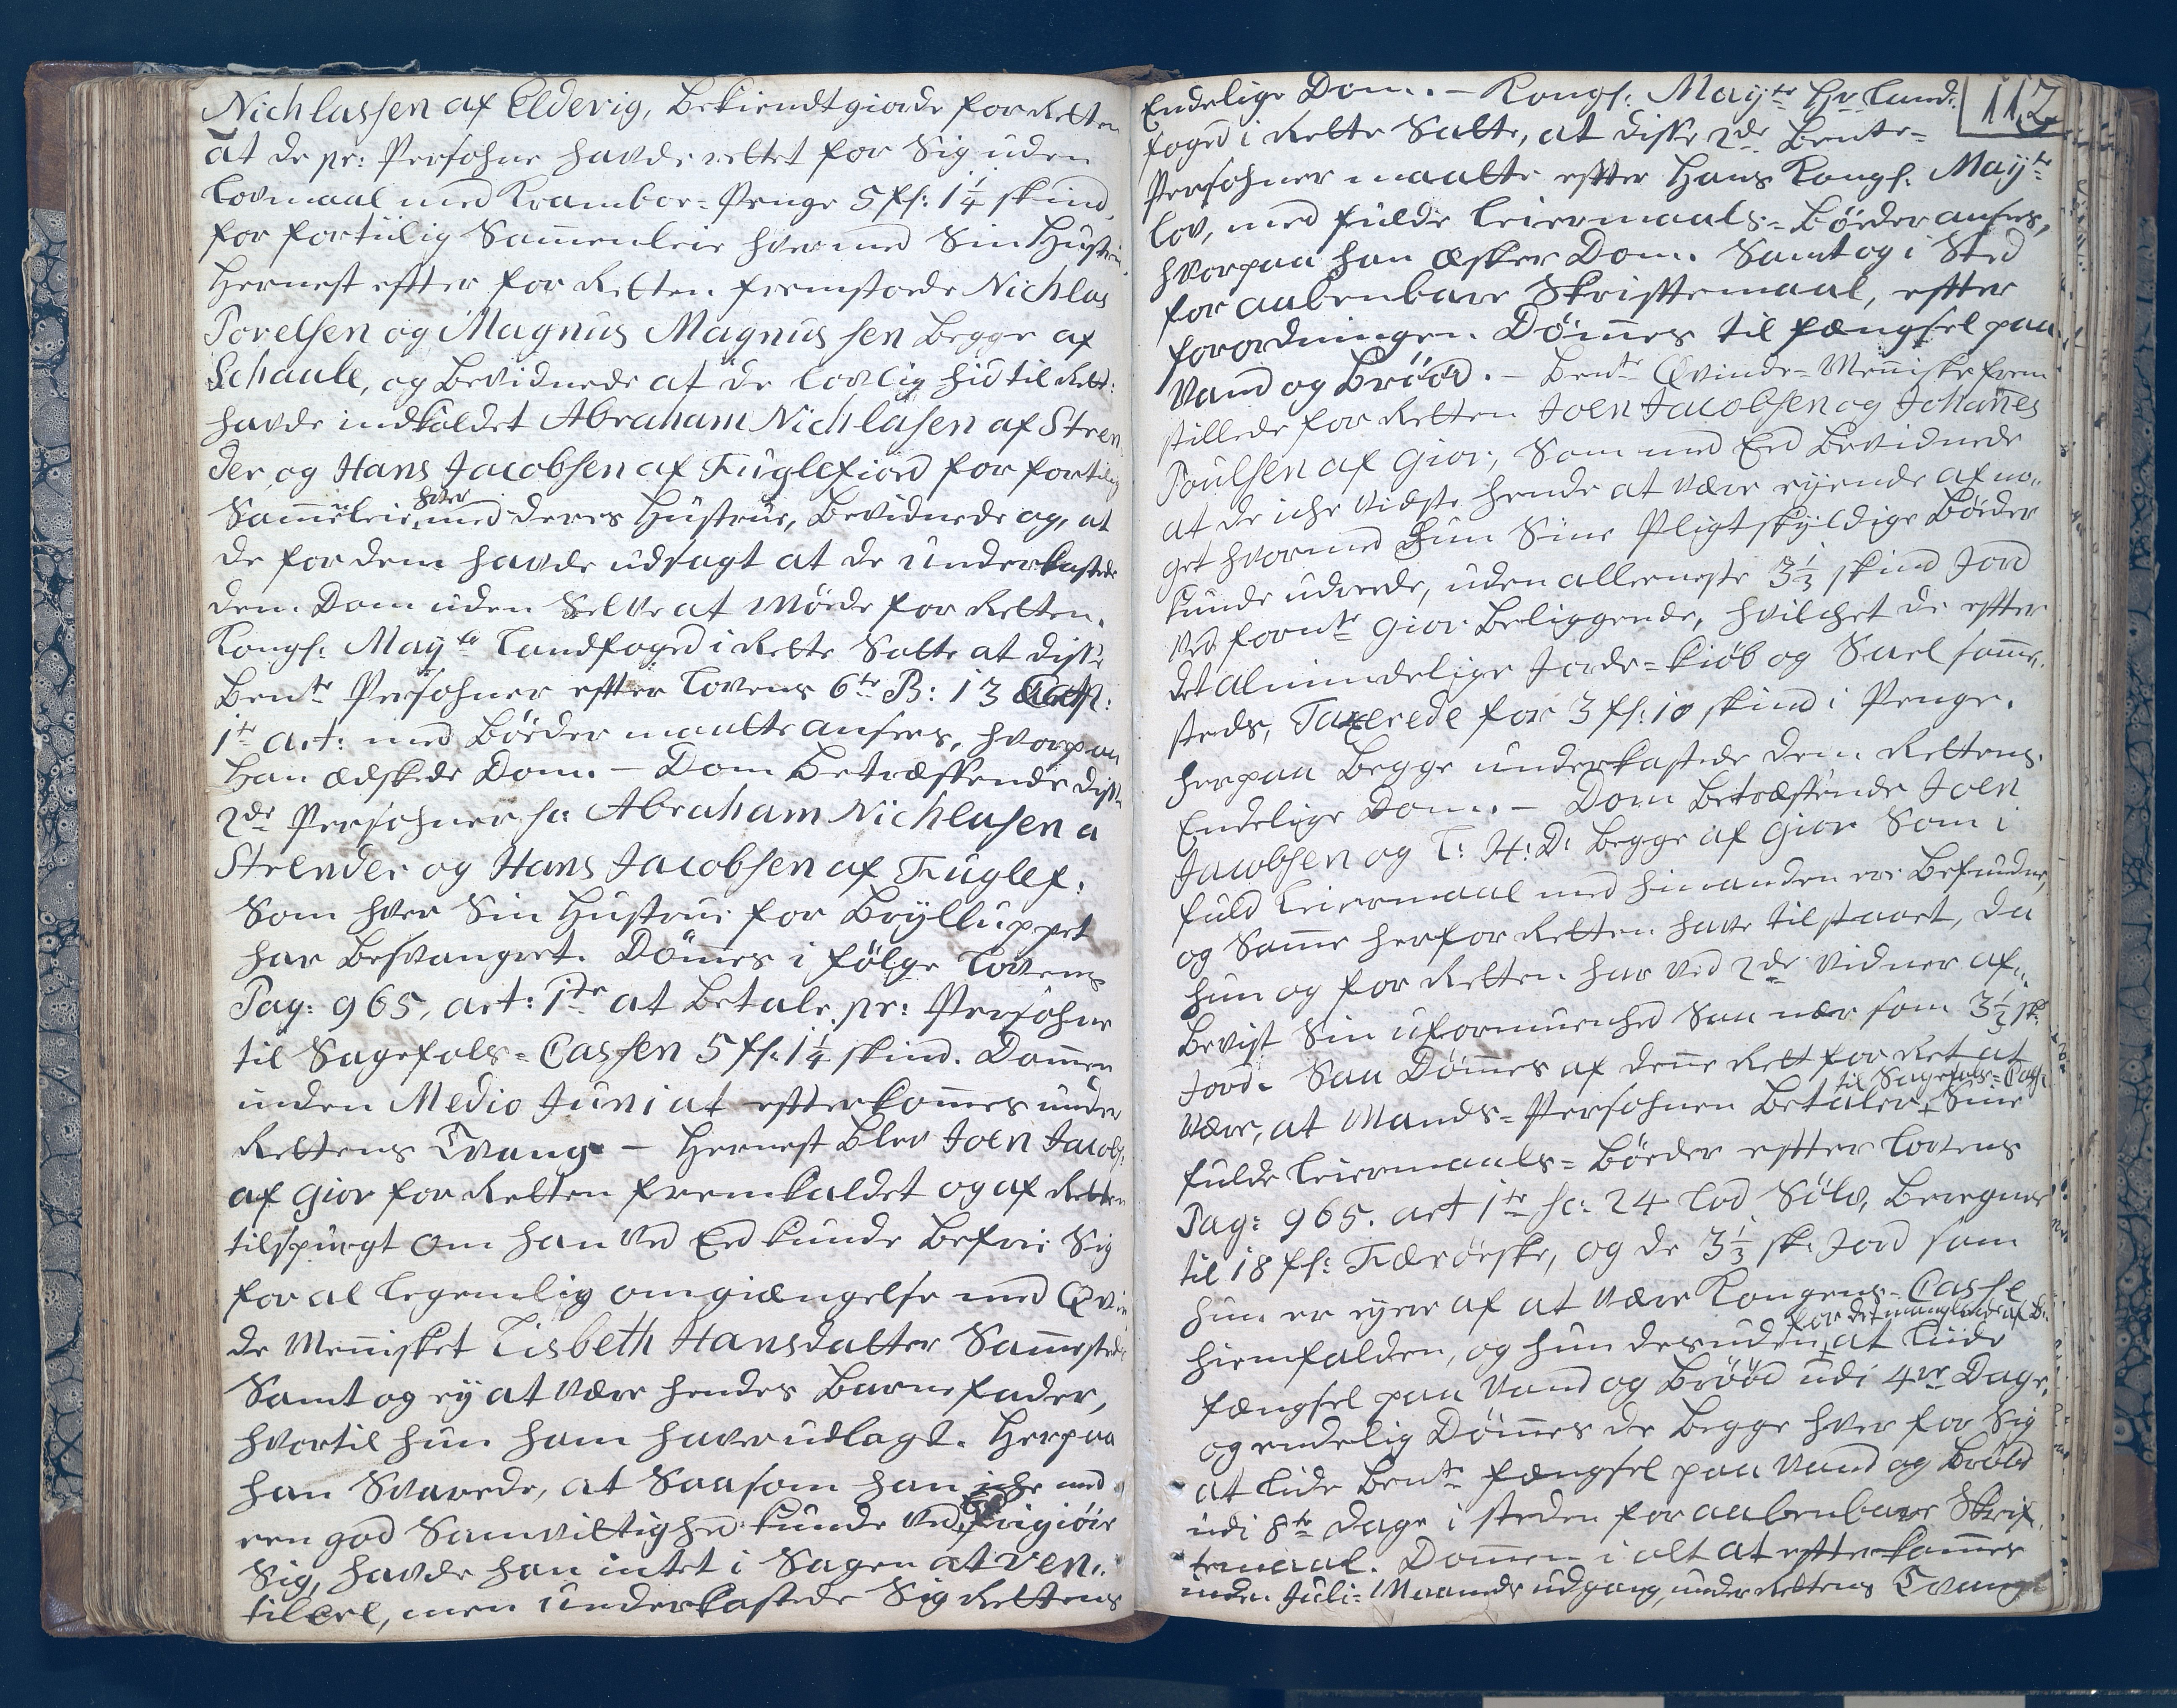 Nichlassen af Eldevig, bekiendtgiorde for Retten
at de pr: Persohne havde rettet for Sig uden
Lovmaal med Kramboe-Penge 5 fl: 1¼ skind
for fortiilig Sammenleie hver med Sin Hustru.
Hernest effter for Retten fremstoede Nichlas
Povelsen og Magnus Magnussen begge af
Schaale, og bevidnede at de lovlig hid til Rett:
havde indkaldet Abraham Nichlasen af Stren
der og Hans Jacobsen af Fuglefiord for fortilig
Sammeleie hver med deres Hustrue, bevidnede og, at
de for dem havde udsagt at de underkastede
dem Dom uden Selve at Møede for Retten.
Kongl: Mayts Landfoged i Rette Satte at disse
bente Persohner effter Lovens 6te B: 13 Capt:
1te art: med Bøeder maatte ansees, hvorpaa
Han ædskede Dom. – Dom betræffende disse
2de Persohner sc: Abraham Nichlasen a
Strender og Hans Jacobsen af Fuglef:
Som hver Sin Hustrue for Brylluppet
har besvangret. Dømmes i følge Lovens
Pag: 965, art: 1te at betale pr: Persohne
til Sagefals-Cassen 5 fl: 1¼ skind. Dommen
inden Medio Juni at effterkommes under
Rettens Tvang – Hernest blev Joen Jacobs:
af Giov for Retten fremkaldet og af Retten
tilspurgt om han ved Eed kunde befrie Sig
for al legemlig omgiængelse med Qvin
de Mennisket Lisbeth Hansdatter Sammesteds
Samt og ey at være hendes Barnefader,
hvortil hun ham haver udlagt. Herpaa
han Svarede, at Saasom han iche med
een god Samvittighed kunde ved frigiøre
Sig, havde han intet i Sagen at ven..
tilere, men underkastede Sig Rettens
112
Endelige Dom. – Kongl: Mayts Hr Land:
foged i Rette Satte, at disse 2de bente-
Persohner maatte effter Hans Kongl: Mayts
Lov, med fulde Leiermaals-Bøeder ansees,
hvorpaa han æsker Dom. Samt og i Sted
for aabenbare Skrifftemaal, effter
forordningen. Dømmes til fængsel paa
Vand og Brød. – bente Qvinde-Menniske frem
stillede for Retten Joen Jacobsen og Johannes
Poulsen af Giov, Som med Eed bevidnede
at de iche vidste hende at være eyende af no..
get hvormed hun Sine Pligtskyldige Bøeder
kunde udrede, uden alleeneste 3⅓ skind Jord
ved fornte Giov beliggende, hvilchet de effter
det almindelige Jorde-kiøb og Sael samme..
steds, Taxerede for 3 fl: 10 skind i Penge.
herpaa begge underkastede dem Rettens
Endelige Dom. – Dom betræffende Joen
Jacobsen og L: H: D: begge af Giov Som i
fuld Leiermaal med hinanden ere befundne,
og Samme her for Retten have tilstaaet, da
hun og for Retten har ved 2de vidner af..
bevist Sin uformuenhed Saa nær som 3½ sk:
Jord. Saa Dømmes af denne Rett for Ret at
være, at Mands-Persohnen betaler til Sagefals-Cass: Sine
fulde Leiermaals-Bøeder effter Lovens
Pag: 965. art 1te sc: 24 Lod Sølv, beregnet
til 18 fl: Færøeske, og de 3⅓ sk: Jord som
hun er eyer af at være Kongens-Casse
hiemfalden, og hun desuden for det manglende af B: at liide
fængsel paa Vand og Brød udi 4re Dage,
og endelig Dømmes de begge hver for Sig
at lide bente fængsel paa Vand og Brød
udi 8te Dage i steden for aabenbare Skrif
temaal. Dommen i alt at effterkommes
inden Juli-Maaneds udgang, under Rettens Tvang